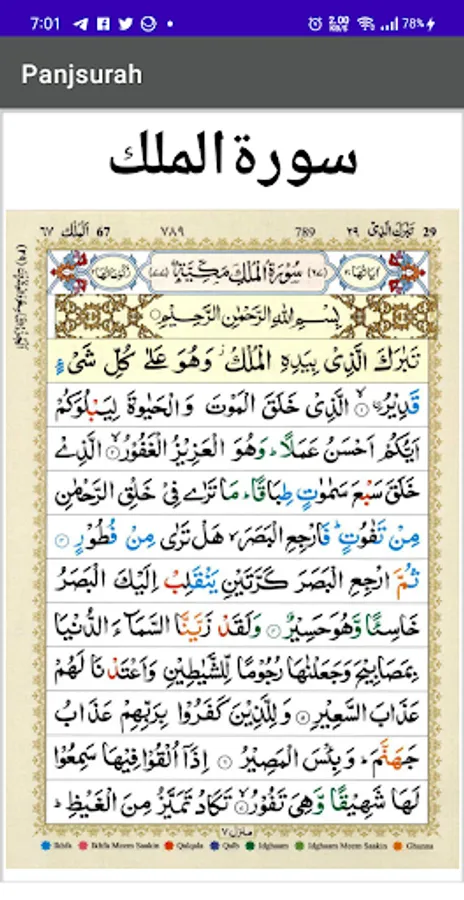 7:01
2.00 KB/S
78%
Panjsurah
سورة الملك
٦٧ اَلْمُلْك 67
٧٨٩
789
تَبٰرَكَ الَّذِىْ ٢٩ 29
اٰيَاتُهَا ٣٠
(٦٧) سُوْرَةُ الْمُلْكِ مَكِّيَّةٌ (٧٧)
رُكُوْعَاتُهَا ٢
بِسْمِ اللهِ الرَّحْمٰنِ الرَّحِيْمِ
تَبٰرَكَ الَّذِىْ بِيَدِهِ الْمُلْكُ ز وَهُوَ عَلٰى كُلِّ شَىْءٍ
قَدِيْرُ ۙ ۨ ١ الَّذِىْ خَلَقَ الْمَوْتَ وَ الْحَيٰوةَ لِيَبْلُوَكُمْ
اَيُّكُمْ اَحْسَنُ عَمَلًا ؕ وَهُوَ الْعَزِيْزُ الْغَفُوْرُ ۙ ٢ الَّذِىْ
خَلَقَ سَبْعَ سَمٰوٰتٍ طِبَاقًا ؕ مَا تَرٰى فِىْ خَلْقِ الرَّحْمٰنِ
مِنْ تَفٰوُتٍ ؕ فَارْجِعِ الْبَصَرَ ۙ هَلْ تَرٰى مِنْ فُطُوْرٍ ٣
ثُمَّ ارْجِعِ الْبَصَرَ كَرَّتَيْنِ يَنْقَلِبْ اِلَيْكَ الْبَصَرُ
خَاسِئًا وَّهُوَ حَسِيْرٌ ٤ وَلَقَدْ زَيَّنَّا السَّمَآءَ الدُّنْيَا
بِمَصَابِيْحَ وَجَعَلْنٰهَا رُجُوْمًا لِّلشَّيٰطِيْنِ وَاَعْتَدْنَا لَهُمْ
عَذَابَ السَّعِيْرِ ٥ وَلِلَّذِيْنَ كَفَرُوْا بِرَبِّهِمْ عَذَابُ
جَهَنَّمَ ؕ وَبِئْسَ الْمَصِيْرُ ٦ اِذَاۤ اُلْقُوْا فِيْهَا سَمِعُوْا
لَهَا شَهِيْقًا وَّهِىَ تَفُوْرُ ۙ ٧ تَكَادُ تَمَيَّزُ مِنَ الْغَيْظِ ؕ
منزل ٧
Ikhfa Ikhfa Meem Saakin Qalqala Qalb Idghaam Idghaam Meem Saakin Ghunna